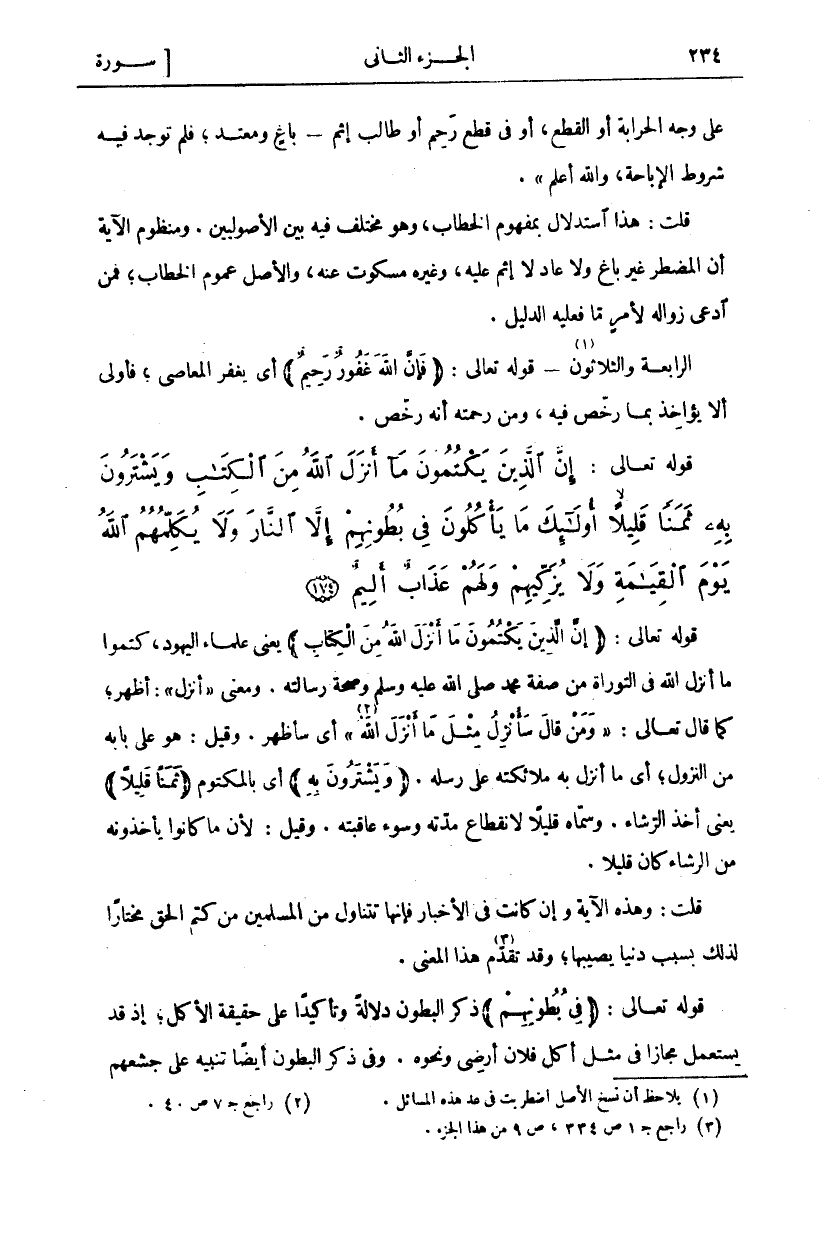 ٢٣٤ الجزء الثانى [ سورة
على وجه الحرابة أو القطع، أو فى قطع رَحِم أو طالب إثم — باغٍ ومعتد؛ فلم توجد فيه
شروط الإباحة، والله أعلم» .
قلت: هذا ٱستدلال بمفهوم الخطاب، وهو مختلف فيه بين الأصوليين . ومنظوم الآية
أن المضطر غير باغ ولا عاد لا إثم عليه، وغيره مسكوت عنه، والأصل عموم الخطاب؛ فمن
ٱدعى زواله لأمرٍ مّا فعليه الدليل .
الرابعة والثلاثون (١) — قوله تعالى : ﴿ فَإِنَّ اللهَ غَفُورٌ رَحِيمٌ ﴾ أى يغفر المعاصى ؛ فأولى
ألا يؤاخذ بما رخّص فيه ، ومن رحمته أنه رخّص .
قوله تعالى : إِنَّ ٱلَّذِينَ يَكْتُمُونَ مَآ أَنزَلَ ٱللَّهُ مِنَ ٱلْكِتَٰبِ وَيَشْتَرُونَ
بِهِۦ ثَمَنًا قَلِيلًا ۙ أُولَٰٓئِكَ مَا يَأْكُلُونَ فِى بُطُونِهِمْ إِلَّا ٱلنَّارَ وَلَا يُكَلِّمُهُمُ ٱللَّهُ
يَوْمَ ٱلْقِيَٰمَةِ وَلَا يُزَكِّيهِمْ وَلَهُمْ عَذَابٌ أَلِيمٌ ﴿١٧٤﴾
قوله تعالى : ﴿ إِنَّ الَّذِينَ يَكْتُمُونَ مَا أَنْزَلَ اللهُ مِنَ الْكِتَابِ ﴾ يعنى علماء اليهود، كتموا
ما أنزل الله فى التوراة من صفة محمد صلى الله عليه وسلم وصحة رسالته . ومعنى «أنزل»: أظهر؛
كما قال تعالى : « وَمَنْ قَالَ سَأُنْزِلُ مِثْلَ مَا أَنْزَلَ اللهُ (٢)» أى سأظهر . وقيل : هو على بابه
من النزول؛ أى ما أنزل به ملائكته على رسله . ﴿ وَيَشْتَرُونَ بِهِ ﴾ أى بالمكتوم ﴿ثَمَنًا قَلِيلًا﴾
يعنى أخذ الرّشاء . وسمّاه قليلًا لانقطاع مدّته وسوء عاقبته . وقيل : لأن ما كانوا يأخذونه
من الرشاء كان قليلا .
قلت: وهذه الآية و إن كانت فى الأخبار فإنها تتناول من المسلمين من كتم الحق مختارًا
لذلك بسبب دنيا يصيبها؛ وقد تقدّم (٣) هذا المعنى .
قوله تعالى : ﴿ فِى بُطُونِهِمْ ﴾ ذكر البطون دلالةً وتأكيدًا على حقيقة الأكل؛ إذ قد
يستعمل مجازا فى مثل أكل فلان أرضى ونحوه . وفى ذكر البطون أيضًا تنبيه على جشعهم
(١) يلاحظ أن نسخ الأصل اضطربت فى عد هذه المسائل . (٢) راجع جـ ٧ ص ٤٠ .
(٣) راجع جـ ١ ص ٣٣٤ ، ص ٩ من هذا الجزء .